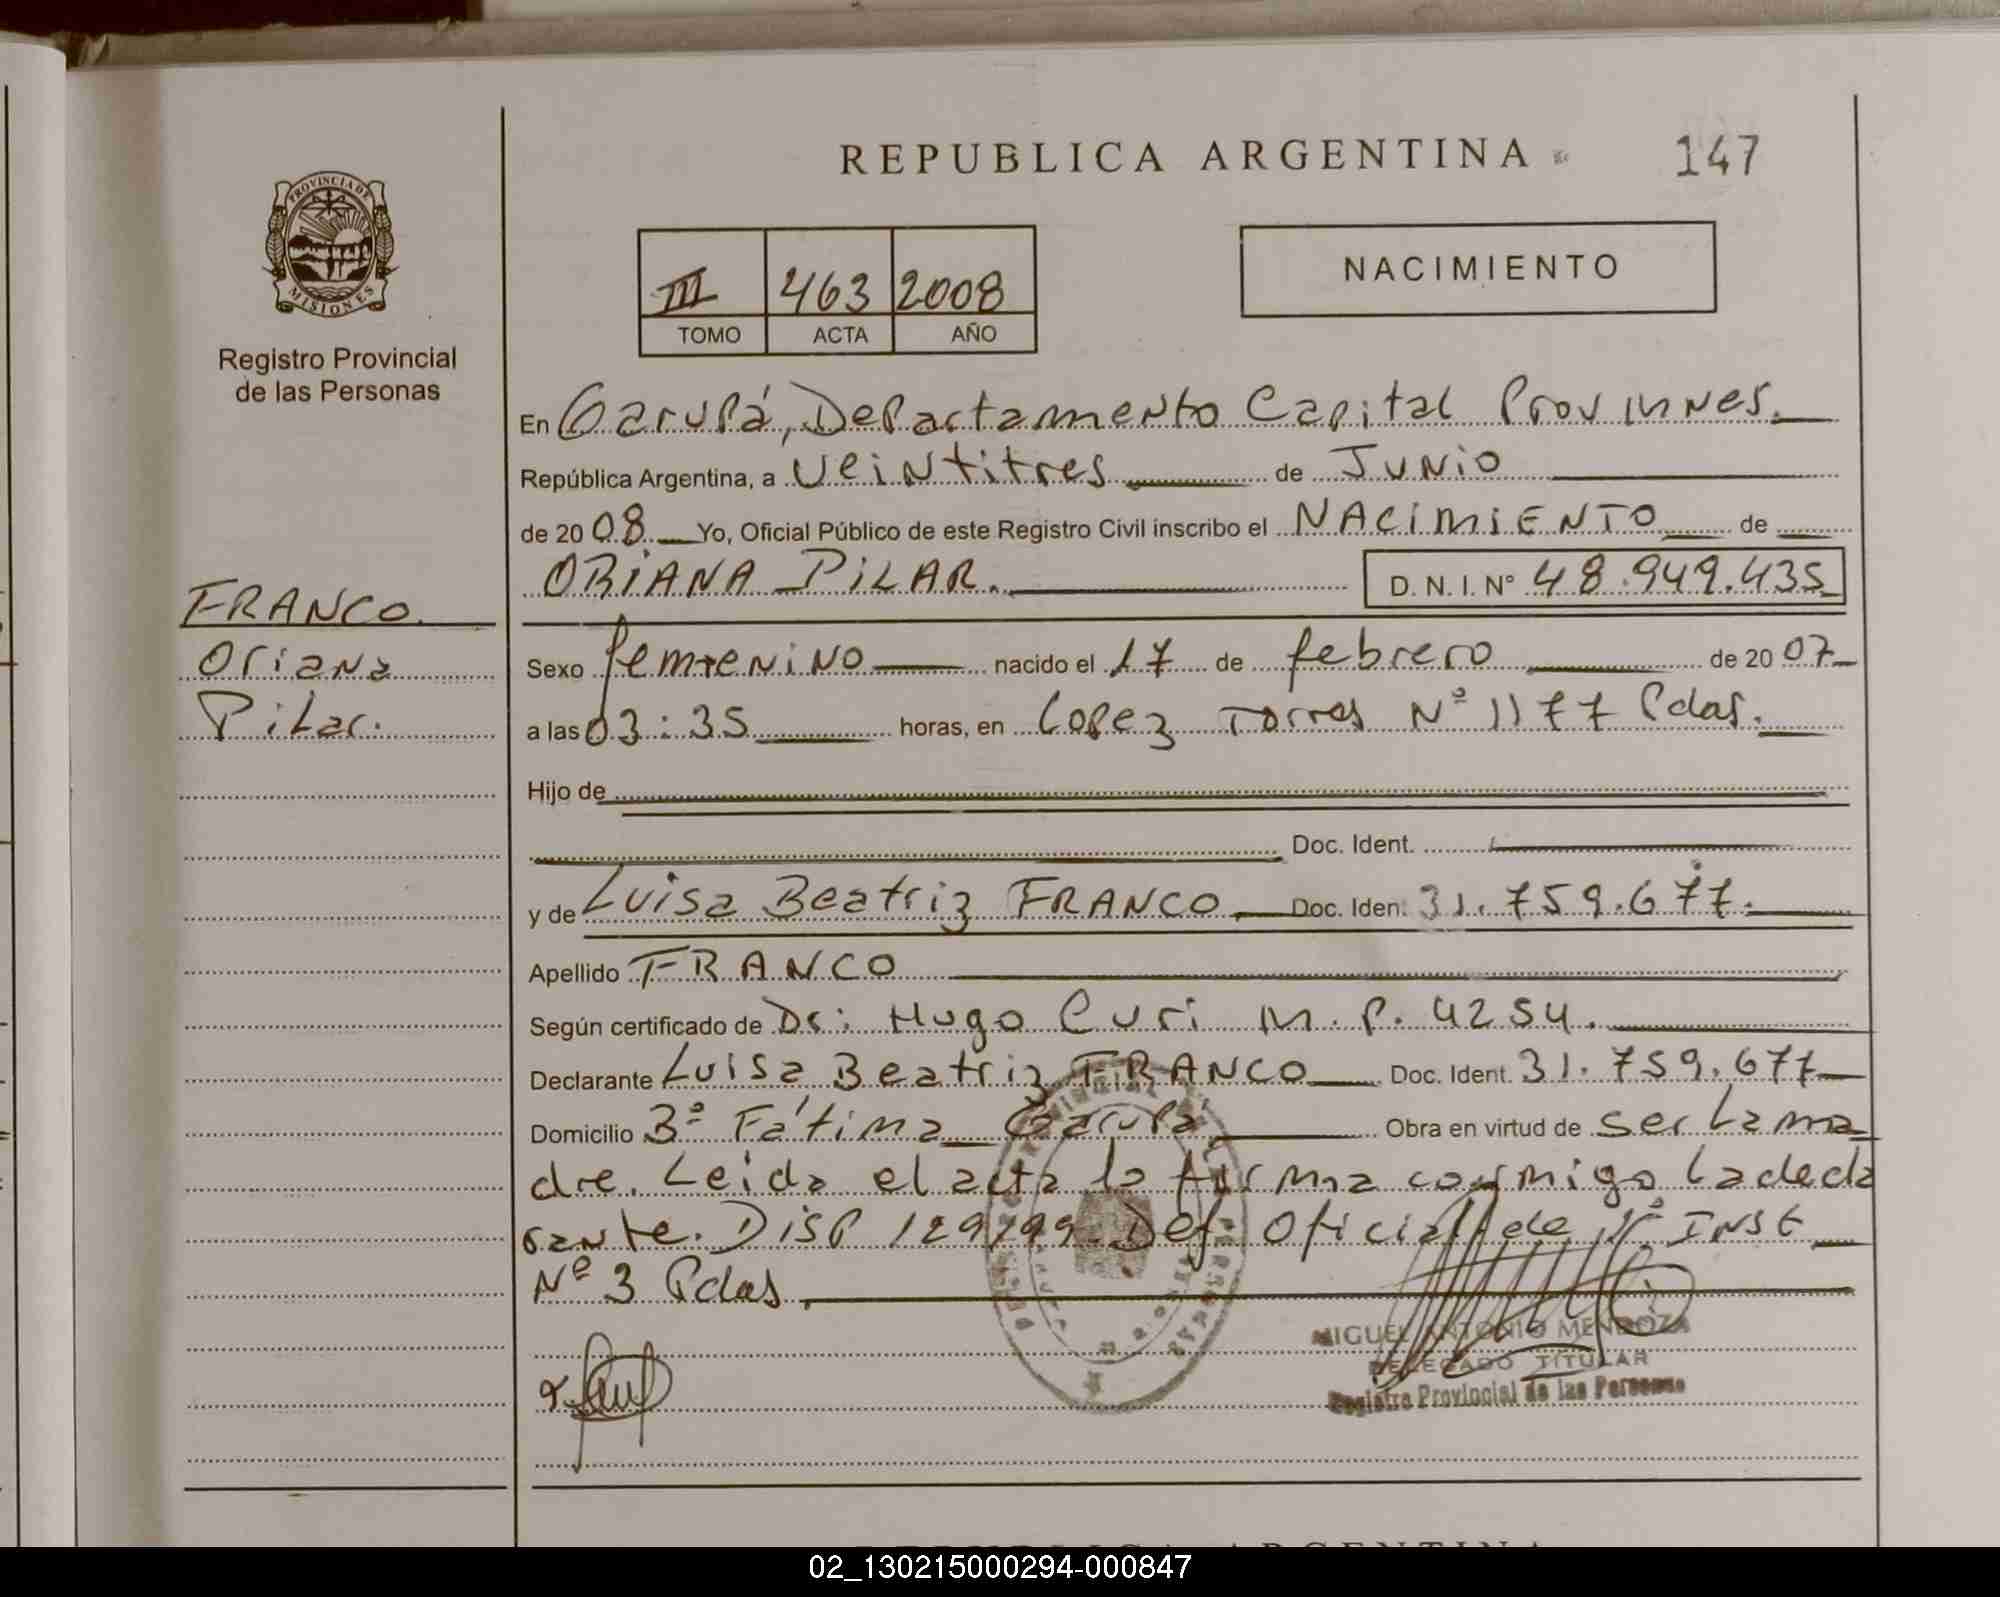 REPUBLICA ARGENTINA
147
PROVINCIA DE
MISIONES
Registro Provincial
de las Personas
III 463 2008
TOMO ACTA AÑO
NACIMIENTO
En Garupá, Departamento Capital Prov mnes.
República Argentina, a veintitres de Junio
de 2008 Yo, Oficial Público de este Registro Civil inscribo el NACIMIENTO de
ORIANA PILAR. D. N. I. Nº 48.949.435
FRANCO.
Oriana
Pilar.
Sexo femenino nacido el 17 de febrero de 2007
a las 03:35 horas, en Lopez Torres Nº 1177 Pdas.
Hijo de
Doc. Ident.
y de Luisa Beatriz FRANCO Doc. Iden. 31.759.677.
Apellido FRANCO
Según certificado de Dr: Hugo Curi M.P. 4254.
Declarante Luisa Beatriz FRANCO Doc. Ident. 31.759.677
Domicilio Bº Fátima Garupá Obra en virtud de ser la ma
dre. Leida el acta la firma conmigo la decla
rante. Disp 129/99 Def. Oficial de 1º INST
Nº 3 Pdas.
MIGUEL ANTONIO MENDOZA
DELEGADO TITULAR
Registro Provincial de las Personas
REPUBLICA ARGENTINA
02_130215000294-000847